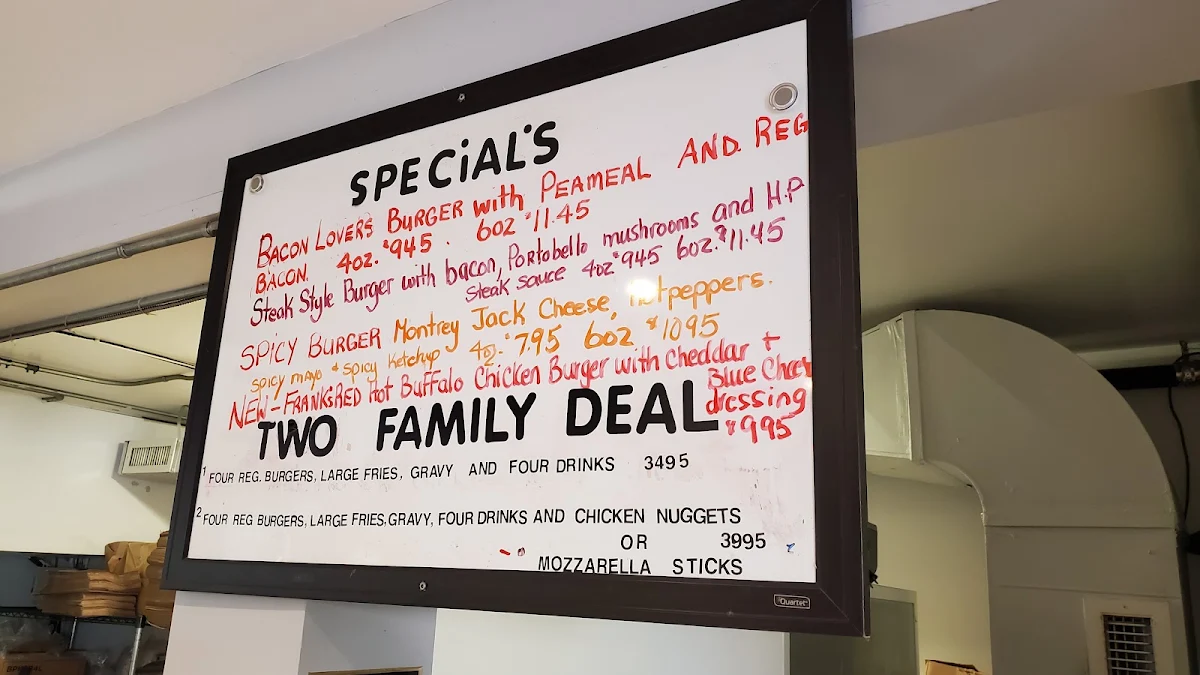 SPECiAL'S
BACON LOVERS BURGER with PEAMEAL AND REG
BACON. 4oz. $945. 6oz $11.45
Steak Style Burger with bacon, Portobello mushrooms and H.P
Steak Sauce 4oz $945 6oz. $11.45
SPICY BURGER Montrey Jack Cheese, peppers.
SPICY mayo & spicy Ketchup 4oz. $7.95 6oz $1095
NEW-FRANKSRED Hot Buffalo Chicken Burger with Cheddar +
Blue Chee
dressing
$995
TWO FAMILY DEAL
1 FOUR REG. BURGERS, LARGE FRIES, GRAVY AND FOUR DRINKS 3495
2 FOUR REG BURGERS, LARGE FRIES, GRAVY, FOUR DRINKS AND CHICKEN NUGGETS
OR 3995
MOZZARELLA STICKS
Quartet